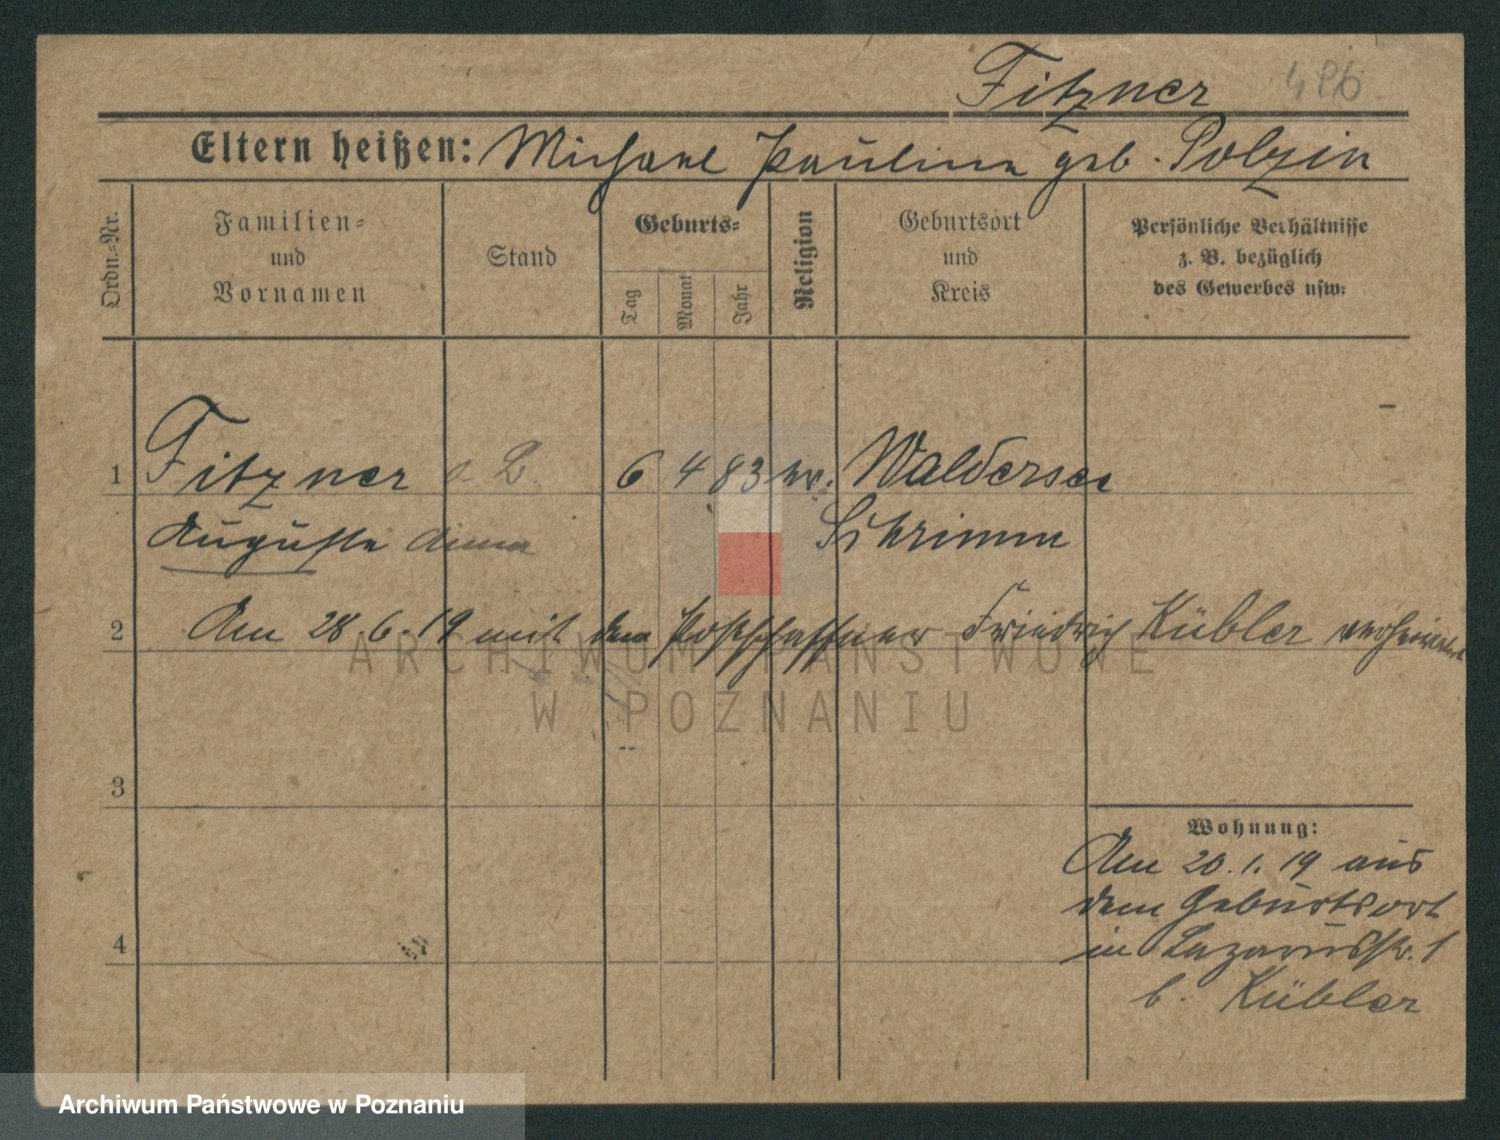 Fitzner
Eltern heißen: Michael Pauline geb. Polzin
Ordn.-Nr.
Familien-
und
Vornamen
Stand
Geburts-
Tag
Monat
Jahr
Religion
Geburtsort
und
Kreis
Persönliche Verhältnisse
z. B. bezüglich
des Gewerbes usw:
1 Fitzner 6 4 83 Waldersee
Auguste Anna Schrimm
2 Am 28.6.19 mit dem Postschaffner Friedrich Kübler verheiratet
3
Wohnung:
Am 20.1.19 aus
dem Geburtsort
4
in Lazarusstr. 1
b. Kübler
ARCHIWUM PAŃSTWOWE
W POZNANIU
Archiwum Państwowe w Poznaniu